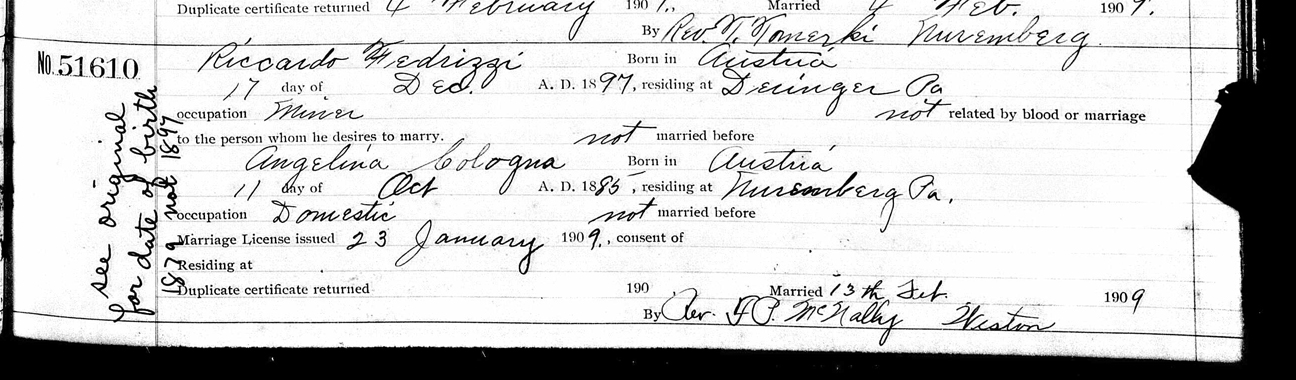 Duplicate certificate returned 4 February 1909., Married 4 Feb. 1909.
By Rev. T. Nuremberg.
No. 51610 Riccardo Fedrizzi Born in Austria
17 day of Dec. A. D. 1897, residing at Deringer Pa
occupation Miner not related by blood or marriage
to the person whom he desires to marry. not married before
Angelina Cologna Born in Austria
11 day of Oct A. D. 1885, residing at Nuremberg Pa.
occupation Domestic not married before
Marriage License issued 23 January 1909., consent of
Residing at
Duplicate certificate returned 190 Married 13th Feb. 1909
By Rev. McNally Weston
see original
for date of birth
1879 not 1897